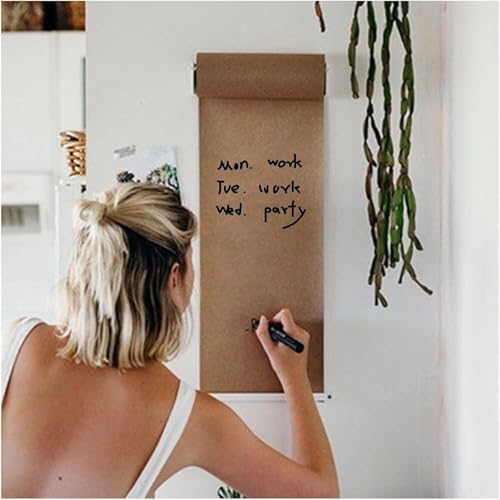 Mon. work
Tue. work
Wed. party